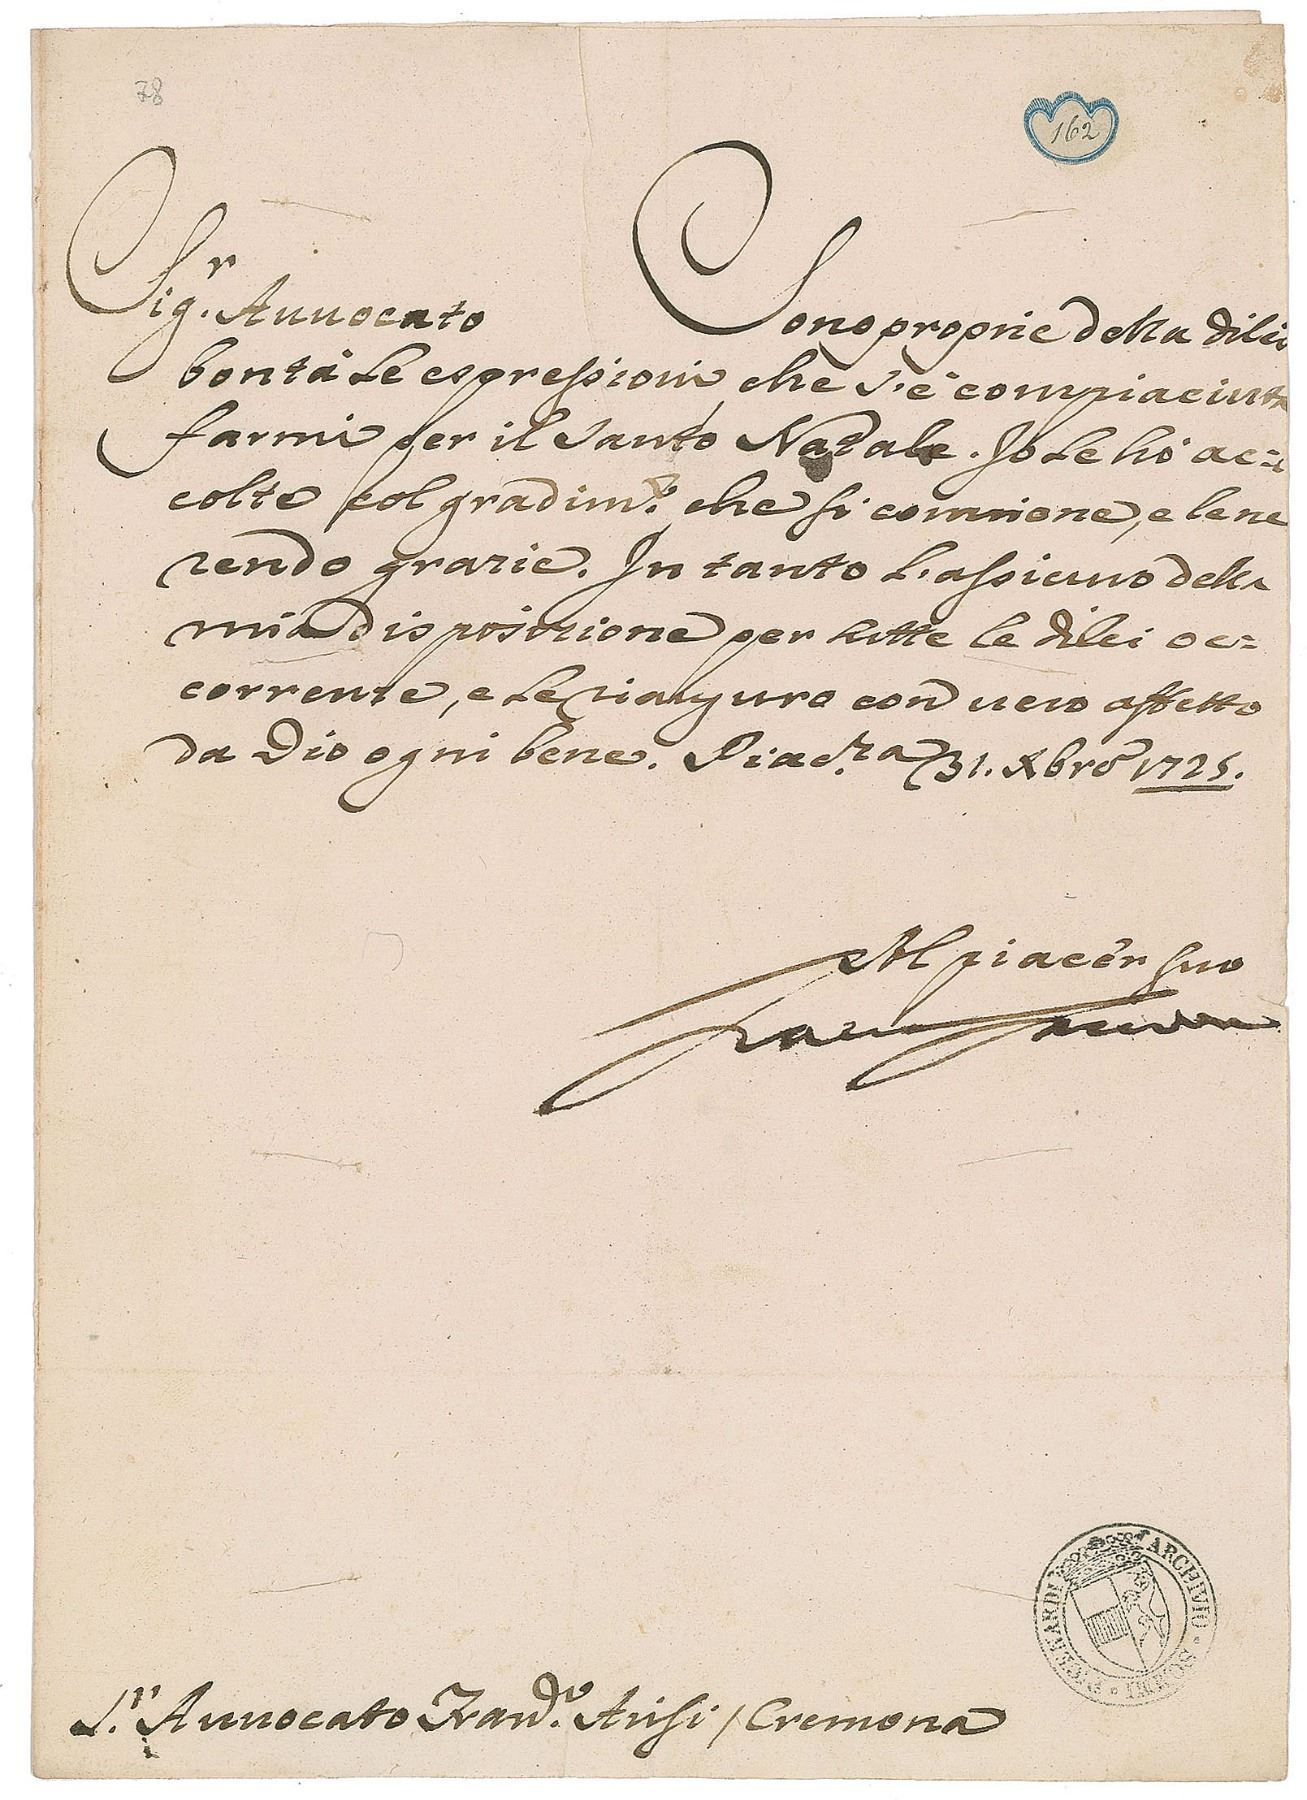 78
162
Sig.r Auuocato Sono proprie della di lei
bontà le espressioni, che s'è compiaciuta
farmi per il Santo Natale. Io le hò ac=
colte col gradim.to che si conuiene, e le ne
rendo grazie. In tanto l'assicuro della
mia disposizione per tutte le di lei oc=
correnze, e le riauguro con uero affetto
da Dio ogni bene. Piac.za 31. Xbre 1725.
Al piacer suo
Sr. Auuocato Fran.co Arisi / Cremona
ARCHIVIO · SOMMI · PICENARDI